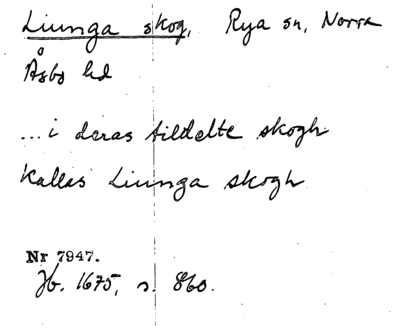 Liunga skog, Rya sn, Norra
Åsbo hd
... i deras tildelte skogh
kallas Liunga skogh
Nr 7947.
Jb. 1675, s. 860.